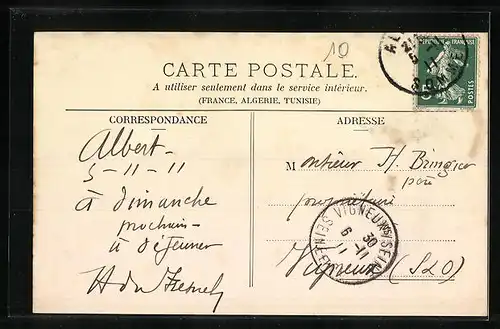 10
CARTE POSTALE.
A utiliser seulement dans le service intérieur.
(FRANCE, ALGERIE, TUNISIE)
CORRESPONDANCE
Albert
5-11-11
à dimanche
prochain
à déjeuner
ADRESSE
Monsieur H.
propriétaire
Vigneux (S&O)
POSTES
VIGNEUX S/SEINE
30
6-11
11